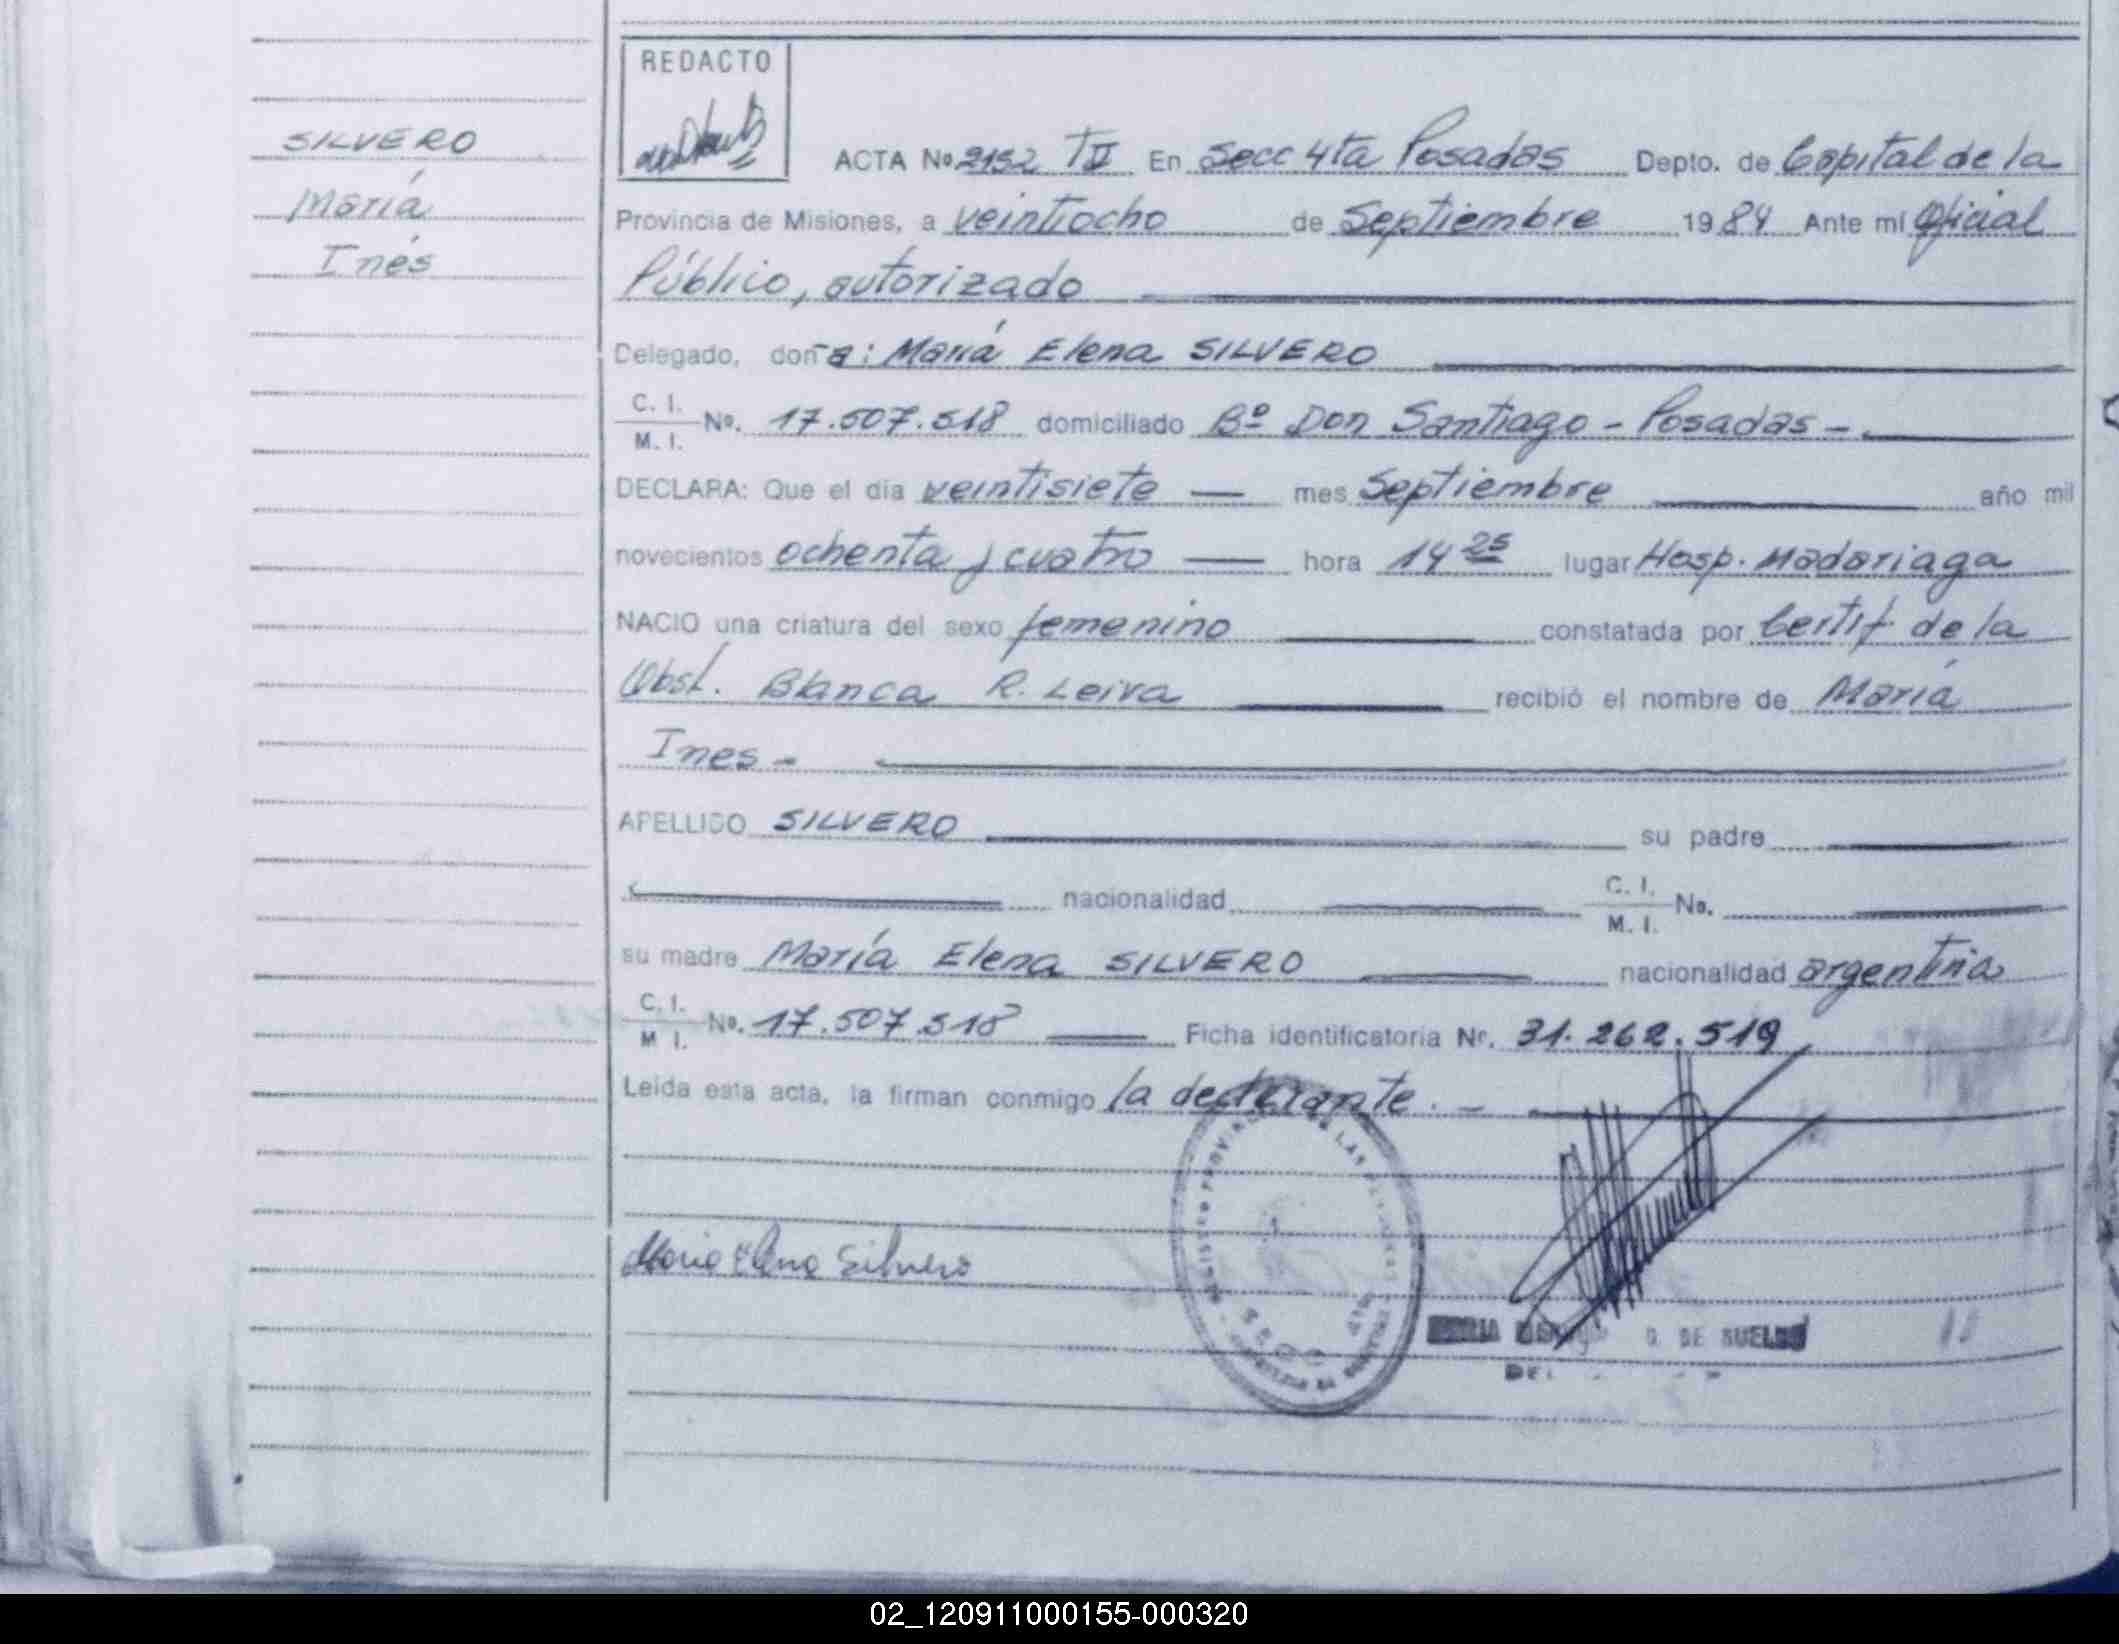 REDACTO
SILVERO
María
Inés
ACTA No 2152 TII En Secc 4ta Posadas Depto. de Capital de la
Provincia de Misiones, a veintiocho de Septiembre 1984 Ante mí Oficial
Público, autorizado
Delegado, doña: María Elena SILVERO
C. I.
M. I. No. 17.507.518 domiciliado Bº Don Santiago - Posadas -
DECLARA: Que el día veintisiete — mes Septiembre año mil
novecientos ochenta y cuatro — hora 14 25 lugar Hosp. Madariaga
NACIO una criatura del sexo femenino constatada por Certif de la
Obst. Blanca R. Leiva recibió el nombre de María
Ines -
APELLIDO SILVERO su padre
nacionalidad C. I. M. I. No.
su madre María Elena SILVERO nacionalidad argentina
C. I.
M. I. No. 17.507.518 Ficha identificatoria Nr. 31.262.519
Leída esta acta, la firman conmigo la declarante. -
Maria Elena Silvero
DE SUELDO
02_120911000155-000320